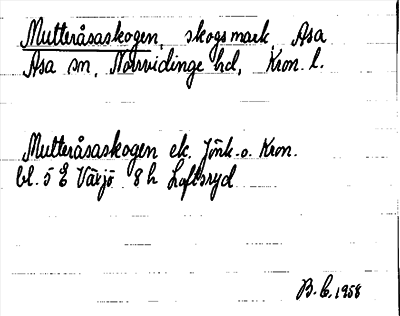 Mutteråsaskogen, skogsmark, Asa
Asa sn, Norrvidinge hd, Kron. l.
Mutteråsaskogen ek. Jönk. o. Kron.
bl. 5 E Växjö 8 h Loftsryd
B. C. 1958